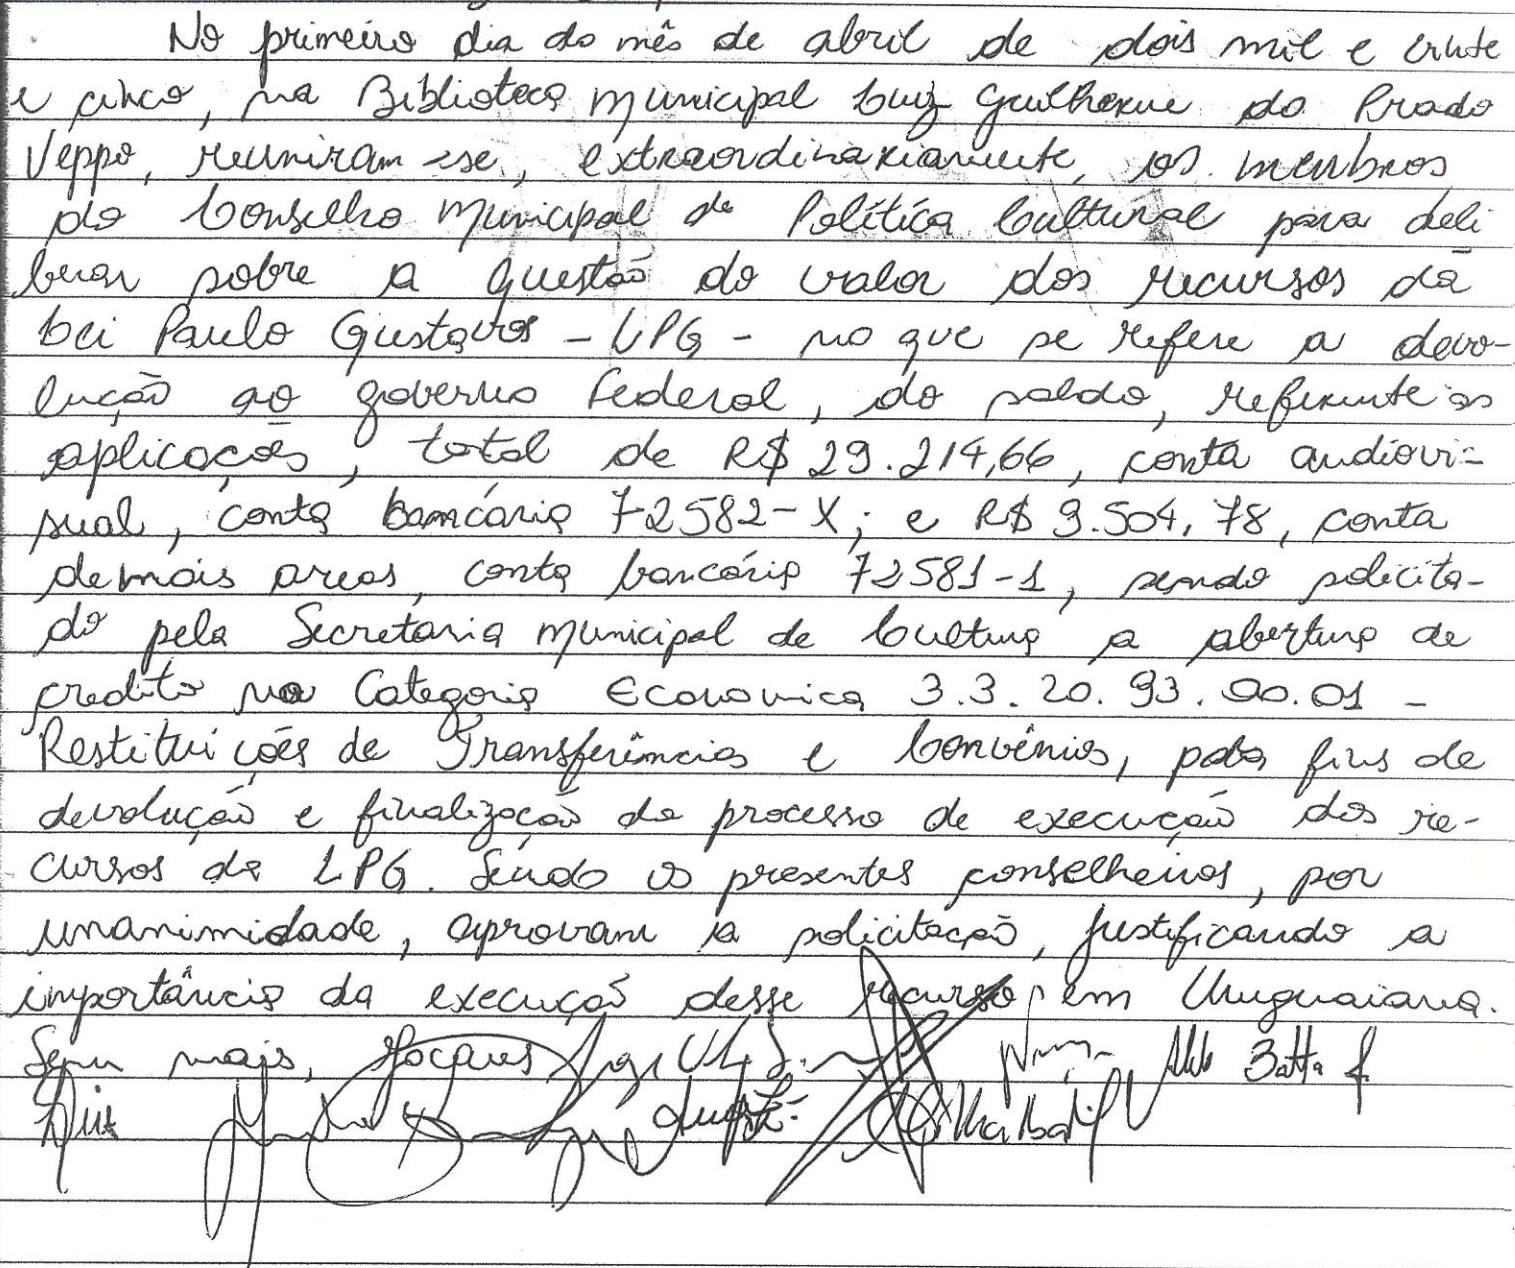 No primeiro dia do mês de abril de dois mil e vinte
e cinco, na Biblioteca Municipal Luiz Guilherme do Prado
Veppo, reuniram-se, extraordinariamente, os membros
do Conselho Municipal de Política Cultural para deli
berar sobre a questão do valor dos recursos da
Lei Paulo Gustavo - LPG - no que se refere a devo-
lução ao governo Federal, do saldo, referente as
aplicações, total de R$ 29.214,66, conta audiovi-
sual, conta bancária 72582-X; e R$ 9.504,78, conta
demais areas, conta bancária 72581-1, sendo solicita-
do pela Secretaria Municipal de Cultura a abertura de
credito na Categoria Economica 3.3.20.93.00.01 -
Restituições de Transferências e Convênios, para fins de
devolução e finalização do processo de execução dos re-
cursos da LPG. Sendo os presentes conselheiros, por
unanimidade, aprovam a solicitação, justificando a
importância da execução desse recurso em Uruguaiana.
Sem mais,